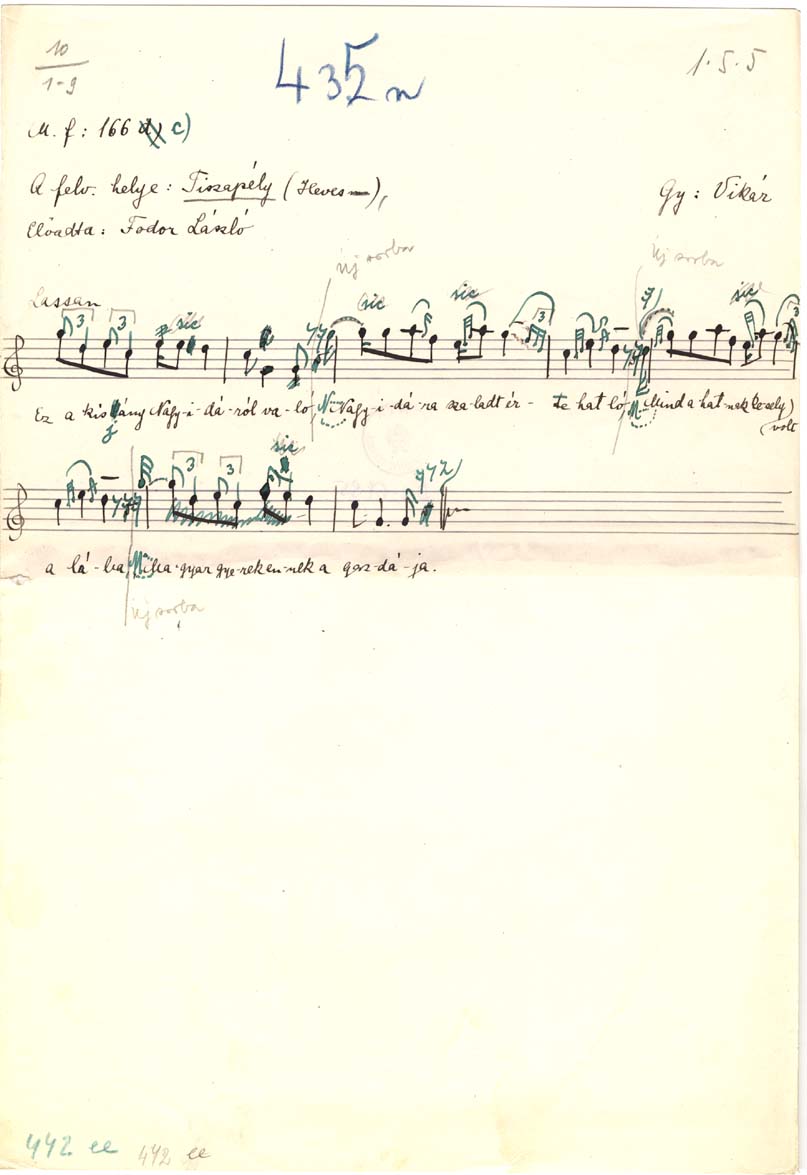 10
1-9
435n
1·5·5
M. f: 166 c)
A felv. helye: Tiszapély (Heves),
Gy: Vikár
Előadta: Fodor László
új sorba
új sorba
Lassan
3 3 sic sic sic 3 sic 3
Ez a kis jány Nagy-i-dá-ról va-ló, Nagy-i-dá-ra sza-ladt ér- te hat ló, Mind a hat-nak kesely
(volt
3 3 sic
a lá-ba, Mi a-gyar gye-rek en-nek a gaz-dá-ja.
új sorba
442 ee 442 ee